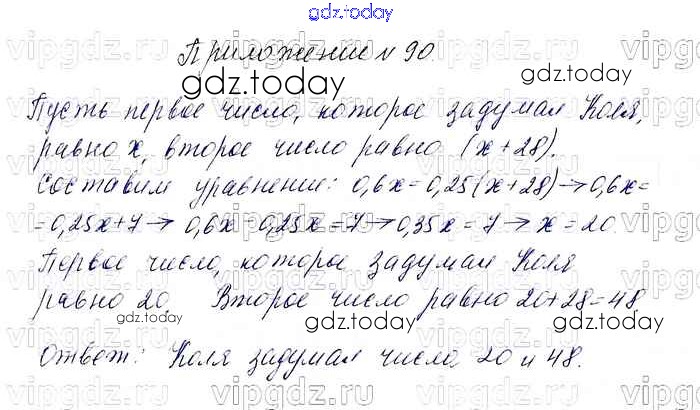 gdz.today
Приложение № 90
gdz.today
gdz.today
Пусть первое число, которое задумал Коля,
равно x, второе число равно (x+28).
Составим уравнение: 0,6x=0,25(x+28)→0,6x=
=0,25x+7→ 0,6x-0,25x=7→0,35x=7→x=20
Первое число, которое задумал Коля
равно 20 Второе число равно 20+28=48
gdz.today
gdz.today
gdz.today
Ответ: Коля задумал числа 20 и 48.
vipgdz.ru